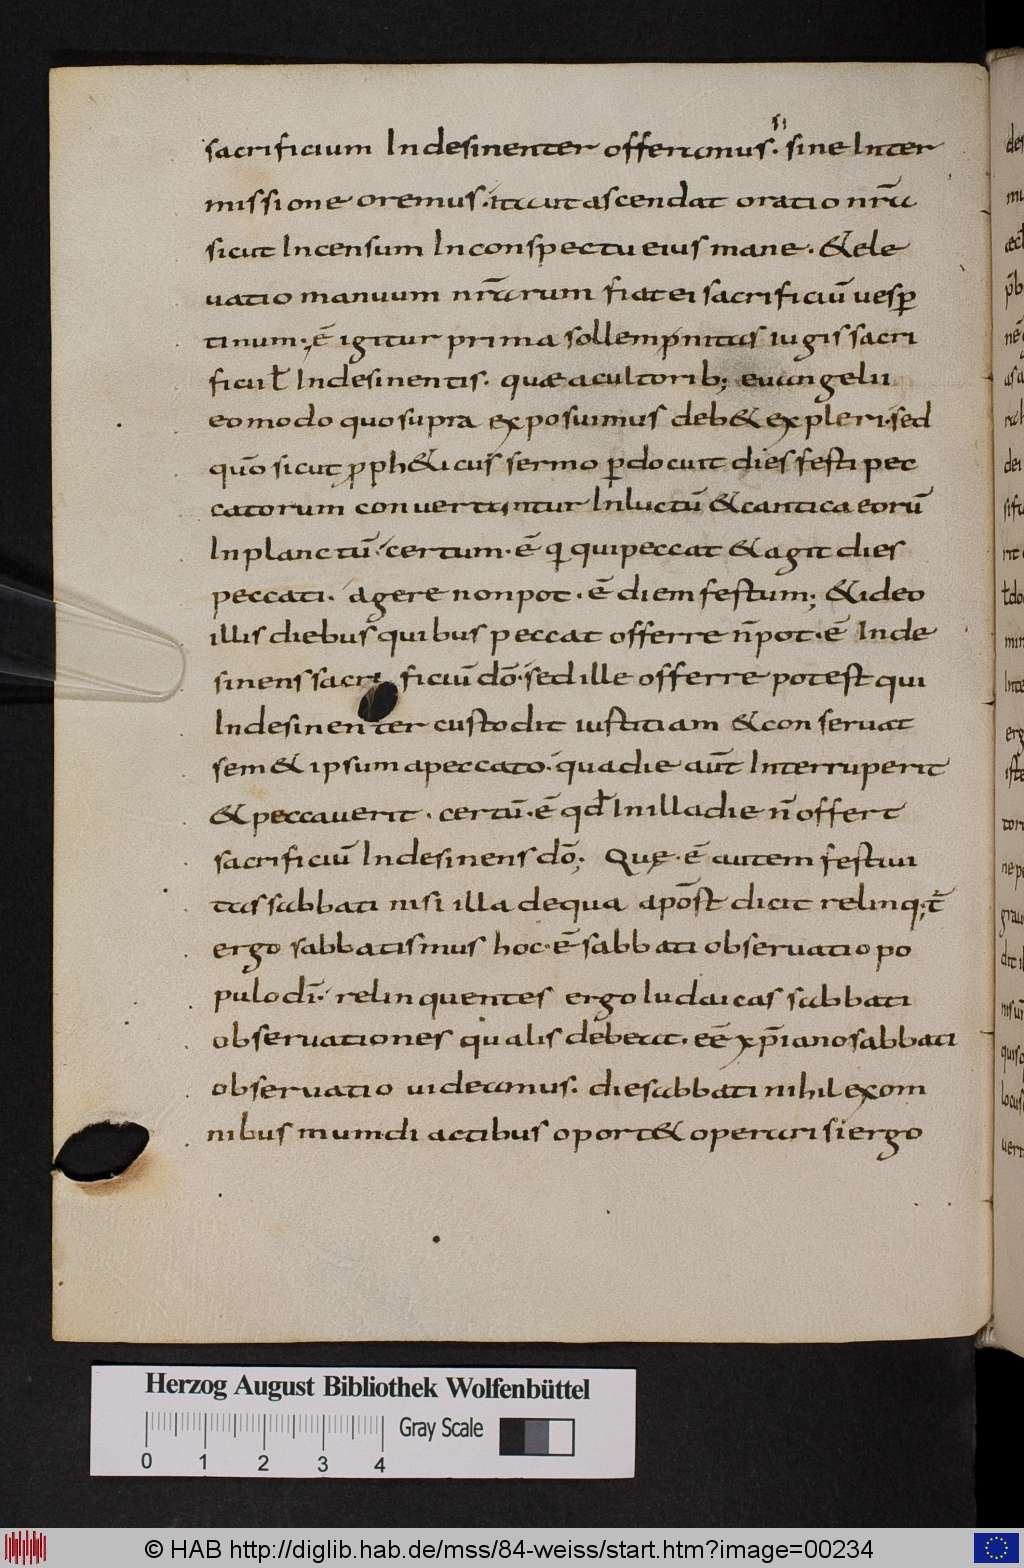 sacrificium Indesinenter offeramus. si sine Inter
missione oremus. ita ut ascendat oratio nr̄a
sicut Incensum In conspectu eius mane. & ele
uatio manuum nr̄arum fiat ei sacrificiū uesp̄
tinum. ē igitur prima sollempnitas iugis sacri
ficii ł Indesinentis. quae a cultorib; euangelii
eo modo quo supra exposuimus deb& expleri. sed
quō sicut pph&icus sermo ꝑdocuit dies festi pec
catorum conuertuntur In luctū & cantica eorū
In planctū. certum. ē qi qui peccat & agit dies
peccati. agere non pot. ē diem festum; & ideo
illis diebus quibus peccat offerre n̄ pot. ē Inde
sinens sacri ficiū dō. sed ille offerre potest qui
Indesinenter custodit iustitiam & conseruat
sem& ipsum a peccato. qua die aūt Interruperit
& peccauerit. certū. ē qđ In illa die n̄ offert
sacrificiū Indesinens dō; Quę. ē autem festiui
tas sabbati nisi illa de qua apōst dicit relinq; t̄
ergo sabbatismus hoc. ē sabbati obseruatio po
pulo dī. relinquentes ergo Iudaicas sabbati
obseruationes qualis debeat. eē xp̄iano sabbati
obseruatio uideamus. die sabbati nihil ex om
nibus mundi actibus oport& operari si ergo
Herzog August Bibliothek Wolfenbüttel
Gray Scale
0 1 2 3 4
© HAB http://diglib.hab.de/mss/84-weiss/start.htm?image=00234